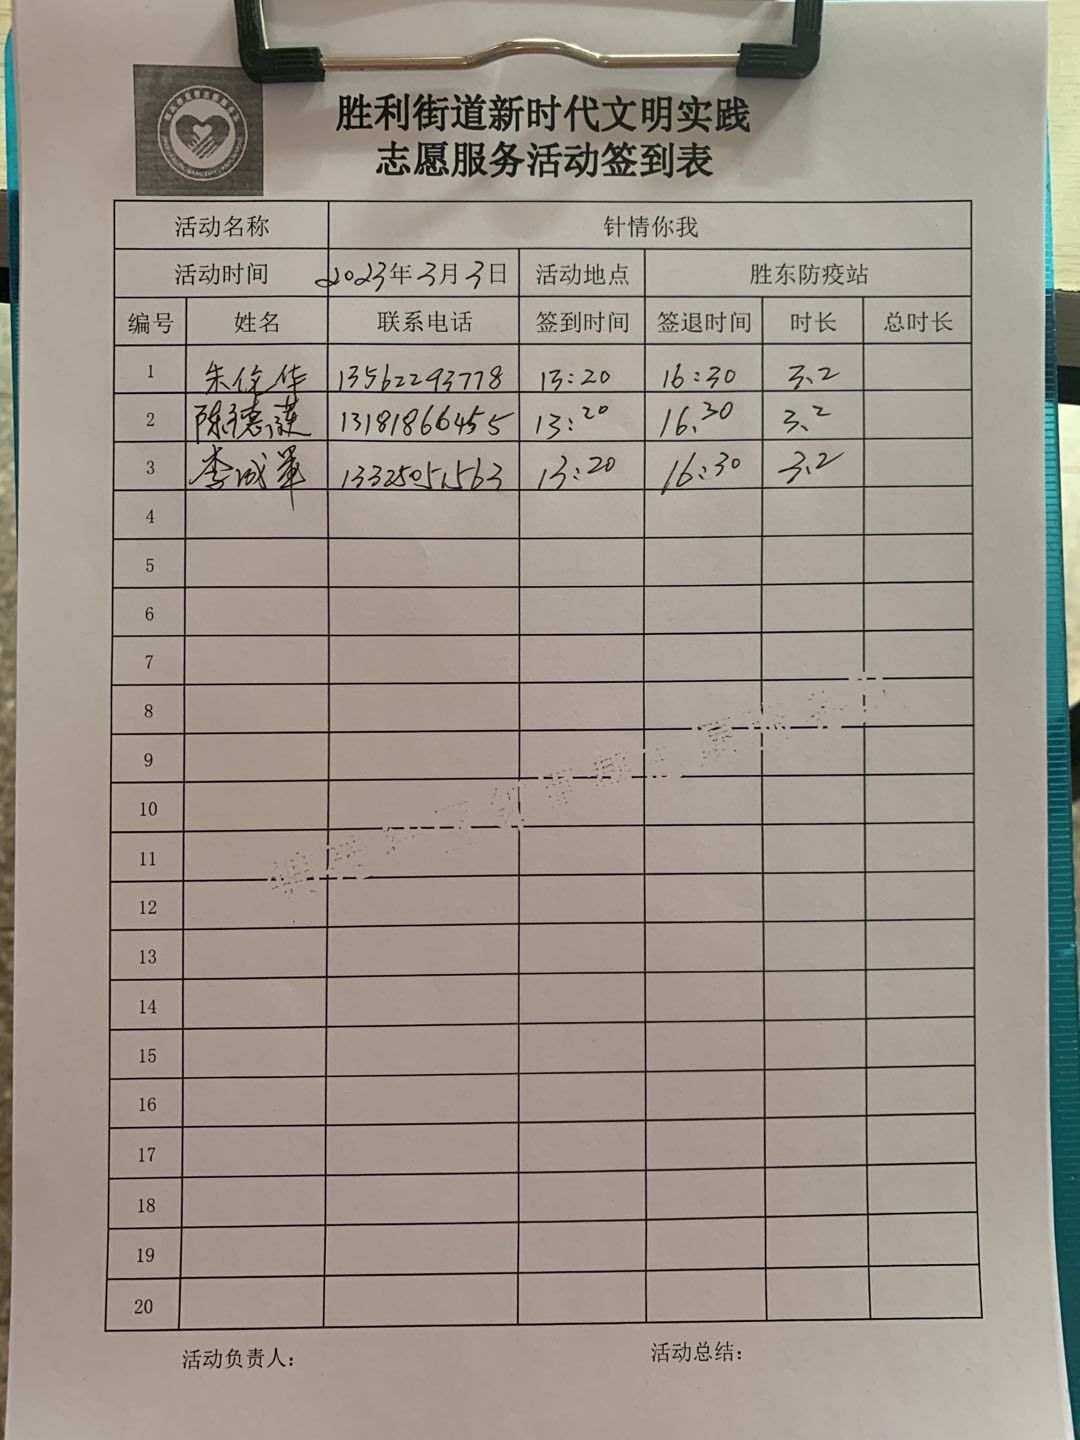 胜利街道新时代文明实践
志愿服务活动签到表
活动名称 针情你我
活动时间 2023年3月3日 活动地点 胜东防疫站
编号 姓名 联系电话 签到时间 签退时间 时长 总时长
1 朱俭华 13562293778 13:20 16:30 3.2
2 陈德莲 13181866455 13:20 16.30 3.2
3 李成军 13325051563 13:20 16:30 3.2
4
5
6
7
8
9
10
11
12
13
14
15
16
17
18
19
20
活动负责人: 活动总结: